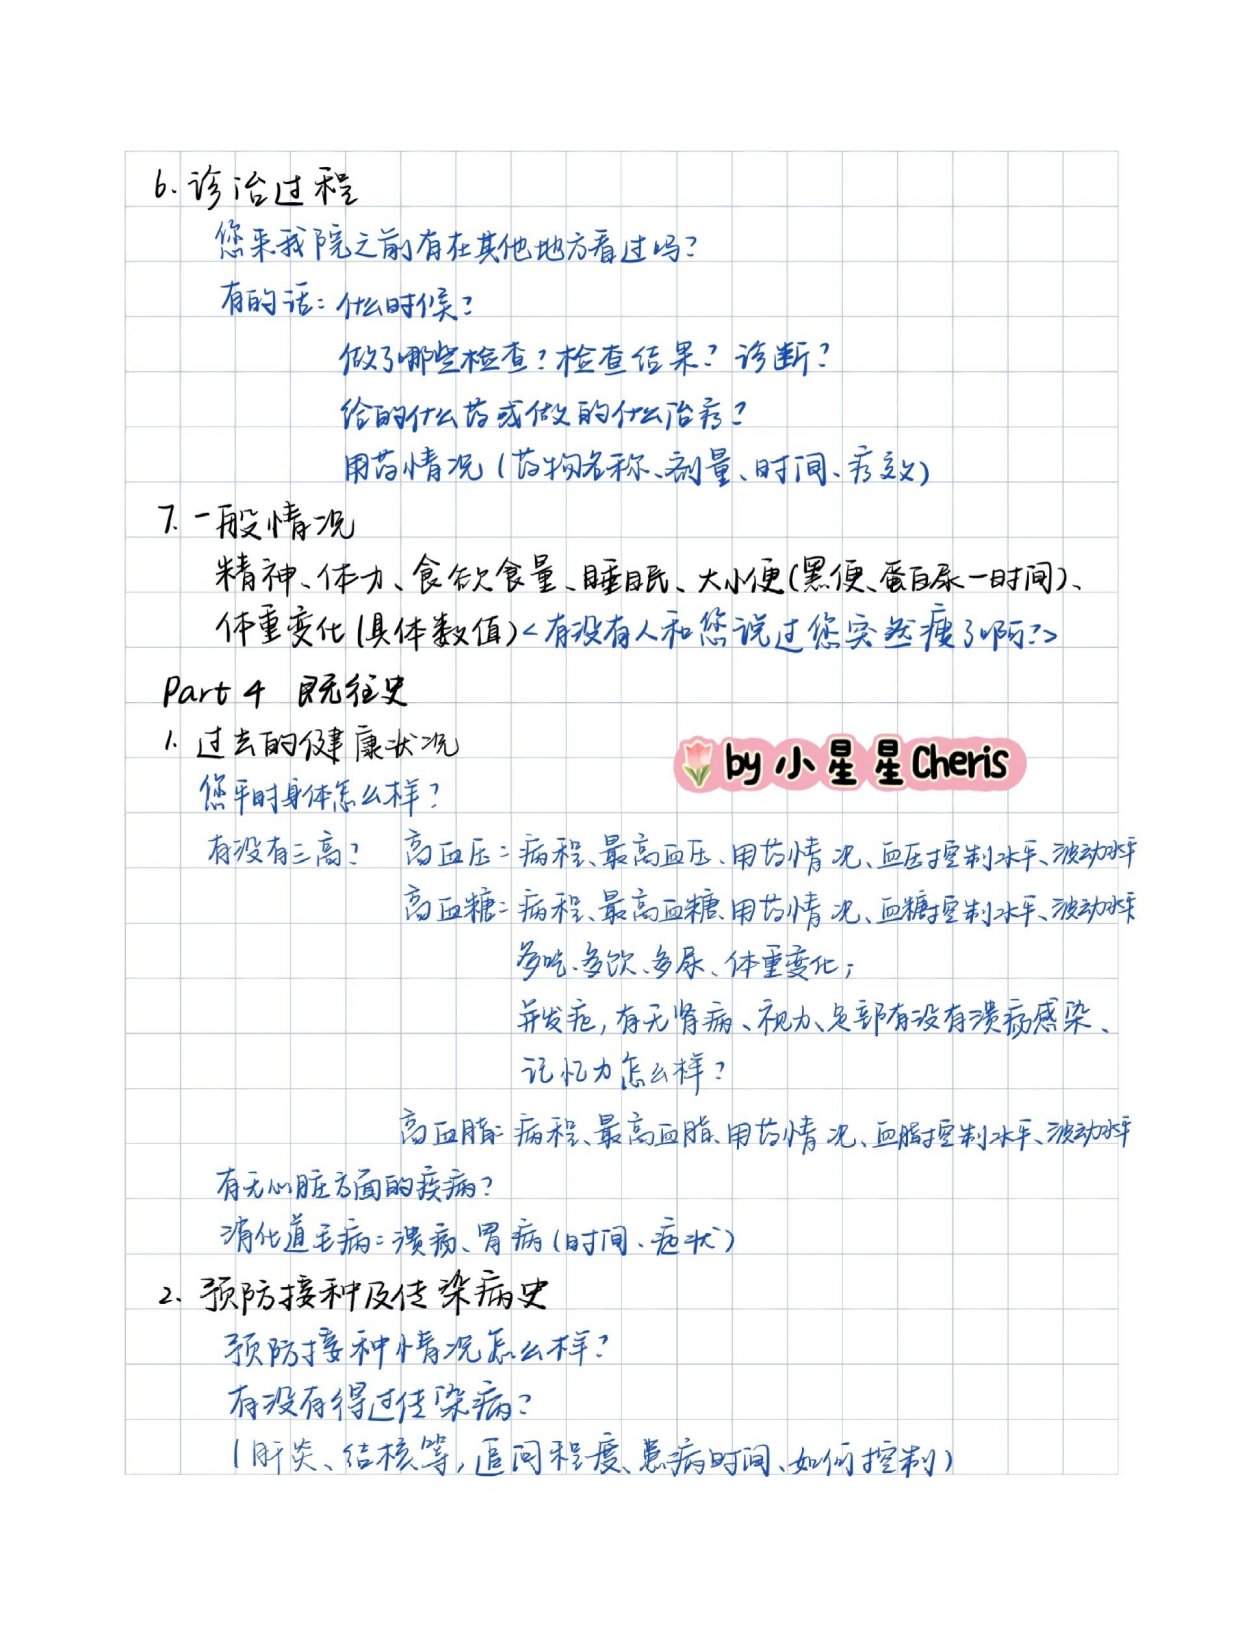 6. 诊治过程
您来我院之前有在其他地方看过吗?
有的话: 什么时候?
做了哪些检查? 检查结果? 诊断?
给的什么药或做的什么治疗?
用药情况(药物名称、剂量、时间、疗效)
7. 一般情况
精神、体力、食欲食量、睡眠、大小便(黑便、蛋白尿—时间)、
体重变化(具体数值)<有没有人和您说过您突然瘦了啊?>
Part 4 既往史
1. 过去的健康状况
by 小星星Cheris
您平时身体怎么样?
有没有三高? 高血压: 病程、最高血压、用药情况、血压控制水平、波动水平
高血糖: 病程、最高血糖、用药情况、血糖控制水平、波动水平
多吃、多饮、多尿、体重变化;
并发症, 有无肾病、视力、足部有没有溃疡感染、
记忆力怎么样?
高血脂: 病程、最高血脂、用药情况、血脂控制水平、波动水平
有无心脏方面的疾病?
消化道毛病: 溃疡、胃病(时间、症状)
2. 预防接种及传染病史
预防接种情况怎么样?
有没有得过传染病?
(肝炎、结核等, 追问程度、患病时间、如何控制)